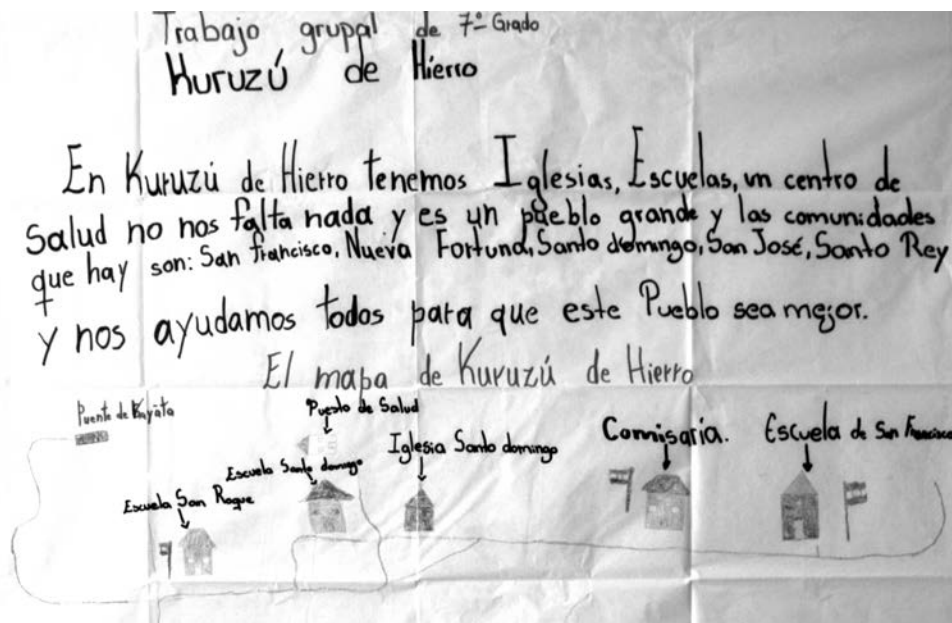 Trabajo grupal de 7º Grado
Kuruzú de Hierro
En Kuruzú de Hierro tenemos Iglesias, Escuelas, un centro de
Salud no nos falta nada y es un pueblo grande y las comunidades
que hay son: San francisco, Nueva Fortuna, Santo domingo, San José, Santo Rey
y nos ayudamos todos para que este Pueblo sea mejor.
El mapa de Kuruzú de Hierro
Puente de
Puesto de Salud
Iglesia Santo domingo
Comisaría.
Escuela de San Francisco
Escuela Santo domingo
Escuela San Roque